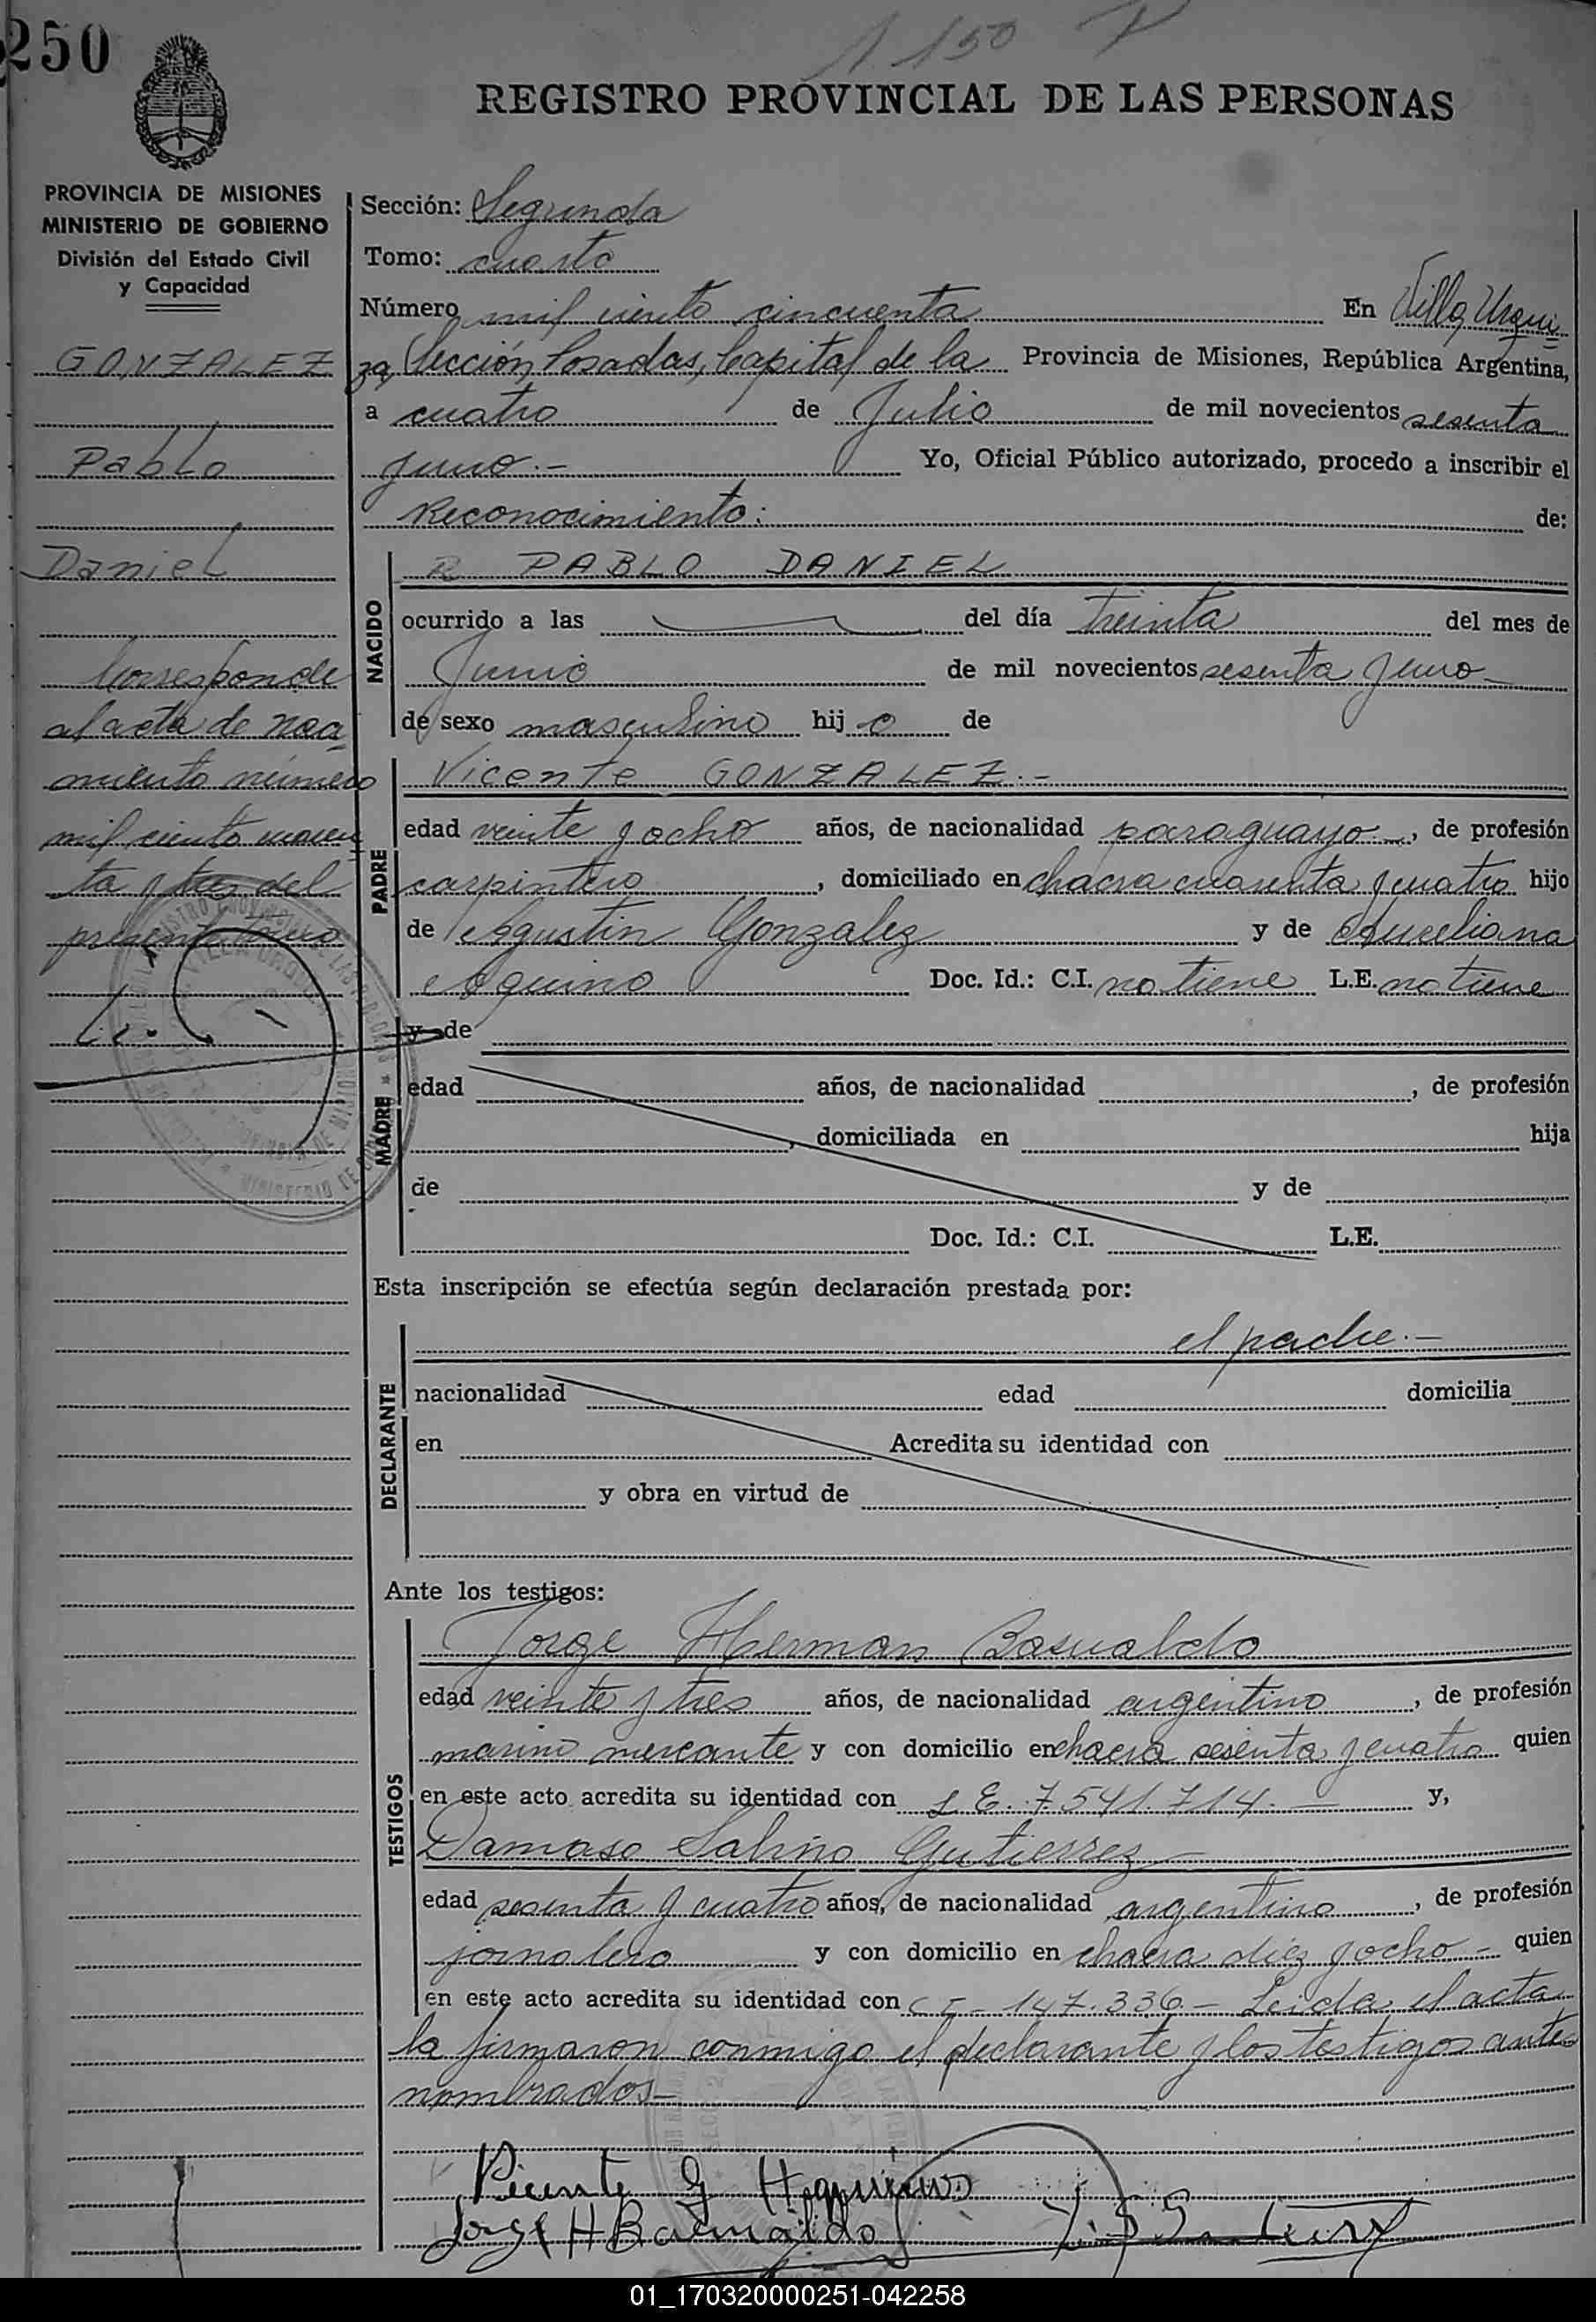 250
1150
REGISTRO PROVINCIAL DE LAS PERSONAS
PROVINCIA DE MISIONES
MINISTERIO DE GOBIERNO
División del Estado Civil
y Capacidad
GONZALEZ
Pablo
Daniel
Corresponde
al acta de naci
miento número
mil ciento noven
ta y tres del
presente tomo
Sección: Segunda
Tomo: cuarto
Número mil ciento cincuenta En Villa Urqui
za, Sección Posadas, Capital de la Provincia de Misiones, República Argentina,
a cuatro de Julio de mil novecientos sesenta
y uno.- Yo, Oficial Público autorizado, procedo a inscribir el
Reconocimiento: de:
NACIDO
PABLO DANIEL
ocurrido a las del día treinta del mes de
Junio de mil novecientos sesenta y uno-
de sexo masculino hij o de
PADRE
Vicente GONZALEZ.-
edad veinte y ocho años, de nacionalidad paraguayo-, de profesión
carpintero, domiciliado en chacra cuarenta y cuatro hijo
de Agustin Gonzalez y de Aureliana
Aquino Doc. Id.: C.I. no tiene L.E. no tiene
MADRE
y de
edad años, de nacionalidad , de profesión
, domiciliada en hija
de y de
Doc. Id.: C.I. L.E.
Esta inscripción se efectúa según declaración prestada por:
DECLARANTE
el padre.-
nacionalidad edad domicilia
en Acredita su identidad con
y obra en virtud de
Ante los testigos:
TESTIGOS
Jorge Herman Basualdo
edad veinte y tres años, de nacionalidad argentino, de profesión
marino mercante y con domicilio en chacra sesenta y cuatro quien
en este acto acredita su identidad con L.E. 7.541.714.- y,
Damaso Sabino Gutierrez
edad sesenta y cuatro años, de nacionalidad argentino, de profesión
jornalero y con domicilio en chacra diez y ocho - quien
en este acto acredita su identidad con C I - 147.336.- Leida el acta
la firmaron conmigo el declarante y los testigos ante
nombrados-
Vicente G
Jorge H Basualdo
01_170320000251-042258